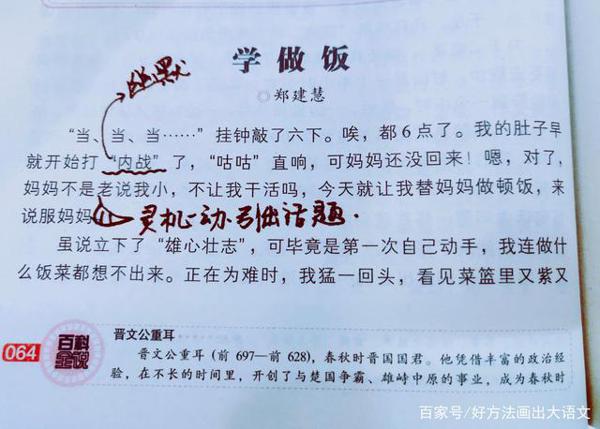 幽默
学做饭
◎郑建慧
“当、当、当……”挂钟敲了六下。唉，都6点了。我的肚子早
就开始打“内战”了，“咕咕”直响，可妈妈还没回来！嗯，对了，
妈妈不是老说我小，不让我干活吗，今天就让我替妈妈做顿饭，来
说服妈妈
灵机一动·引出话题.
虽说立下了“雄心壮志”，可毕竟是第一次自己动手，我连做什
么饭菜都想不出来。正在为难时，我猛一回头，看见菜篮里又紫又
064
百科
全说
晋文公重耳
晋文公重耳（前697—前628），春秋时晋国国君。他凭借丰富的政治经
验，在不长的时间里，开创了与楚国争霸、雄峙中原的事业，成为春秋时
百家号/好方法画出大语文